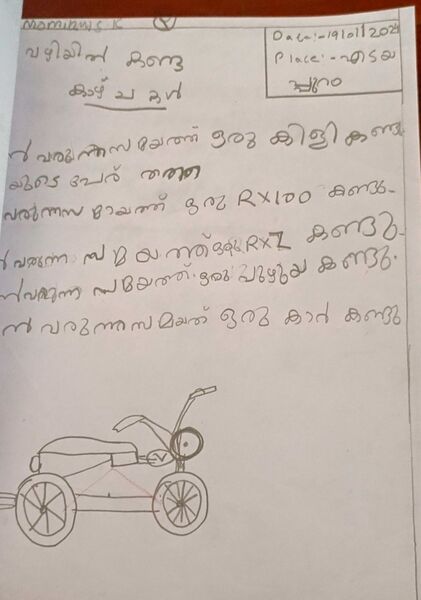 വഴിയിൽ കണ്ട
കാഴ്ചകൾ
Date:-19/01/2024
Place:-എടയ
പ്പുറം
ൻ വരുന്നസമയത്ത് ഒരു കിളി കണ്ടു
യുടെ പേര് തത്ത
വരുന്നസമായത്ത് ഒരു RX100 കണ്ടു-
ൻവരുന്ന സമയത്ത് ഒരു RXZ കണ്ടു-
ൻവരുന്ന സമയത്ത്. ഒരു പുഴുയ കണ്ടു.
ൻ വരുന്നസമയത് ഒരു കാർ കണ്ടു